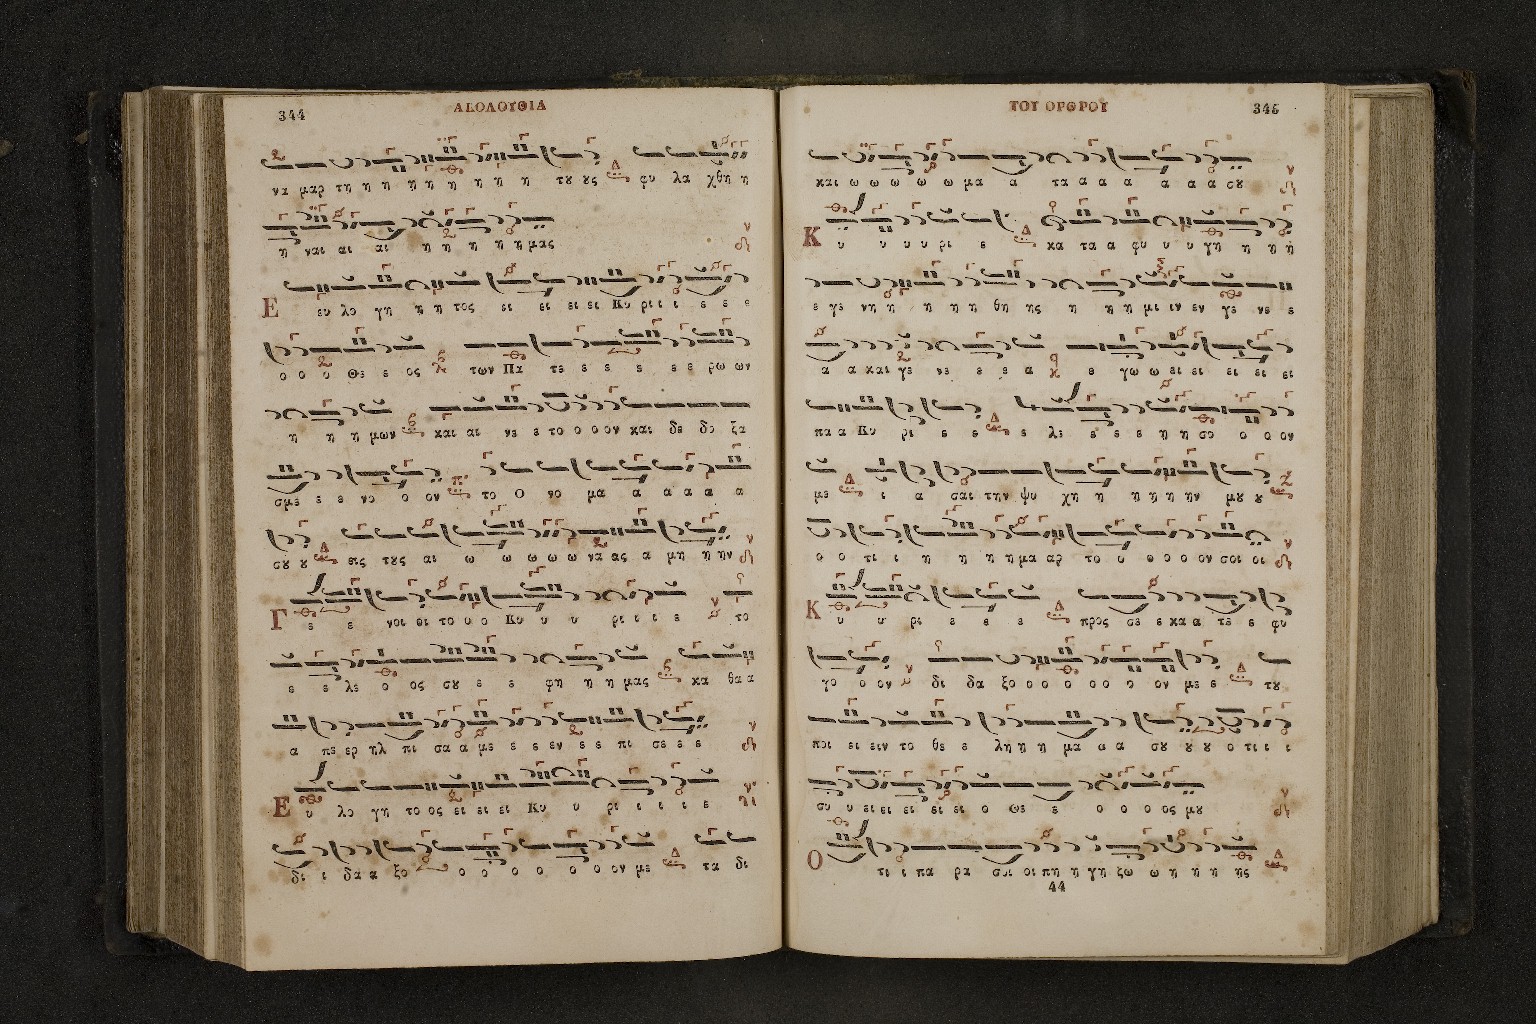 344
ΑΚΟΛΟΥΘΙΑ
να μαρ τη η η η η η η η τȣ ȣς φυ λα χθη η
η ναι αι αι η η η η η μας
Ε ευ λο γη η η τος ει ει ει ει Κυ ρι ι ι ε ε ε
ο ο ο Θε ε ος των Πα τε ε ε ε ε ε ρω ων
η η η μων και αι νε ε το ο ο ον και δε δο ξα
σμε ε ε νο ο ον το Ο νο μα α α α α α
σȣ ȣ εις τȣς αι ω ω ω ω ω να ας α μη η ην
Γ ε ε νοι οι το υ ο Κυ υ υ ρι ι ι ε το
ε ε λε ο ος σȣ ε ε φη η η μας κα θα α
α πε ερ ηλ πι σα α με ε ε εν ε ε πι σε ε ε
Ε υ λο γη το ος ει ει ει Κυ υ ρι ι ι ι ε
δι ι δα α ξο ο ο ο ο ο ο ον με τα δι
ΤΟΥ ΟΡΘΡΟΥ
345
και ω ω ω ω ω μα α τα α α α α α α σȣ
Κ υ υ υ υ ρι ε κα τα α φυ υ υ γη η η η
ε γε νη η η η η θη ης η η η μι ιν εν γε νε ε
α α και γε νε ε ε α ε γω ω ει ει ει ει ει
πα α Κυ ρι ε ε ε λε ε ε ε η η σο ο ο ον
με ι α σαι την ψυ χη η η η η ην μȣ ȣ
ο ο τι ι η η η η μα αρ το ο ο ο ο ον σοι οι
Κ υ υ ρι ε ε ε προς σε ε κα α τε ε φυ
γο ο ον δι δα ξο ο ο ο ο ο ο ον με ε τȣ
ποι ει ειν το θε ε λη η η μα α α σȣ ȣ ȣ ο τι ι ι
συ υ ει ει ει ει ει ο ωε ε ο ο ο ο ος μȣ
Ο τι ι πα ρα σοι οι πη η γη ζω ω η η η ης
44